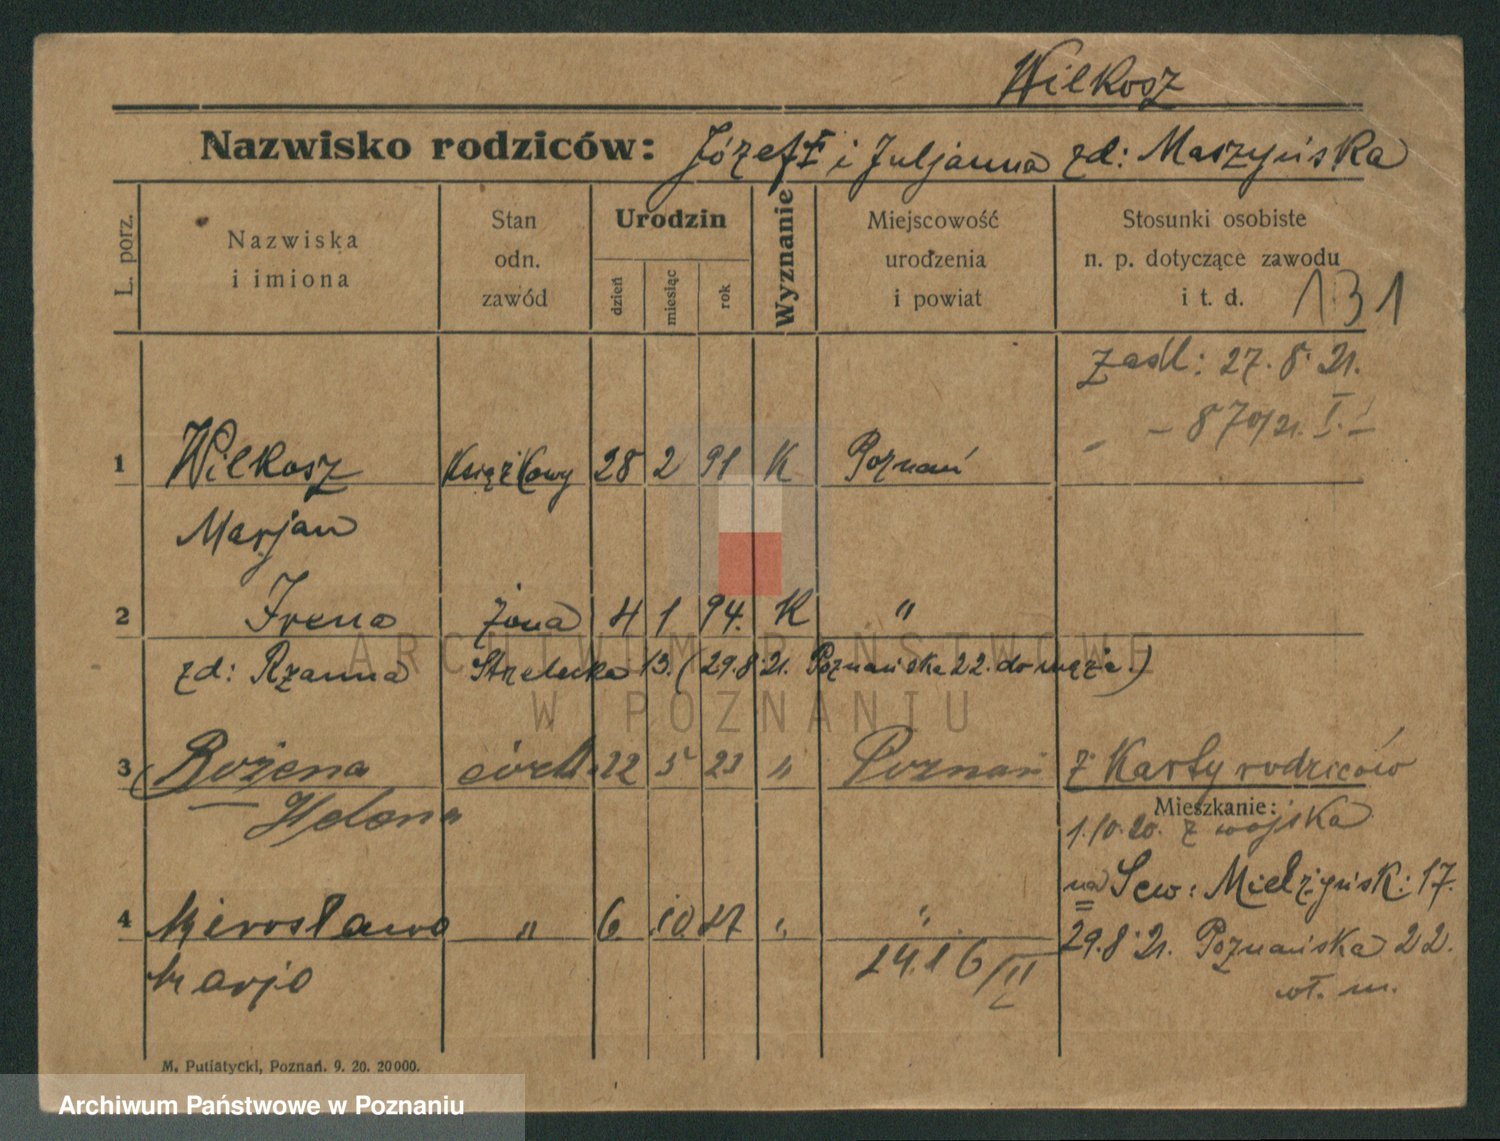 Wilkosz
Nazwisko rodziców: Józef i Juljanna zd: Maszyńska
L. porz.
Nazwiska
i imiona
Stan
odn.
zawód
Urodzin
dzień
miesiąc
rok
Wyznanie
Miejscowość
urodzenia
i powiat
Stosunki osobiste
n. p. dotyczące zawodu
i t. d.
131
zaśl: 27. 8. 21.
- 870/21. I. -
1 Wilkosz Książkowy 28 2 91 K Poznań
Marjan
2 Irena żona 4 1 94. K "
zd: Rzanna Strzelecka 13. (29.8.21. Poznańska 22. do męża.)
3 Bożena córka 22 5 23 " Poznań z Karty rodziców
Helena
Mieszkanie:
1.10.20. z wojska
na Sew: Mielżyńsk: 17.
4 Mirosława " 6 10 27 " "
29.8.21. Poznańska 22.
Marja
24.16/II
wł. m.
M. Putiatycki, Poznań. 9. 20. 20000.
ARCHIWUM PAŃSTWOWE
W POZNANIU
Archiwum Państwowe w Poznaniu